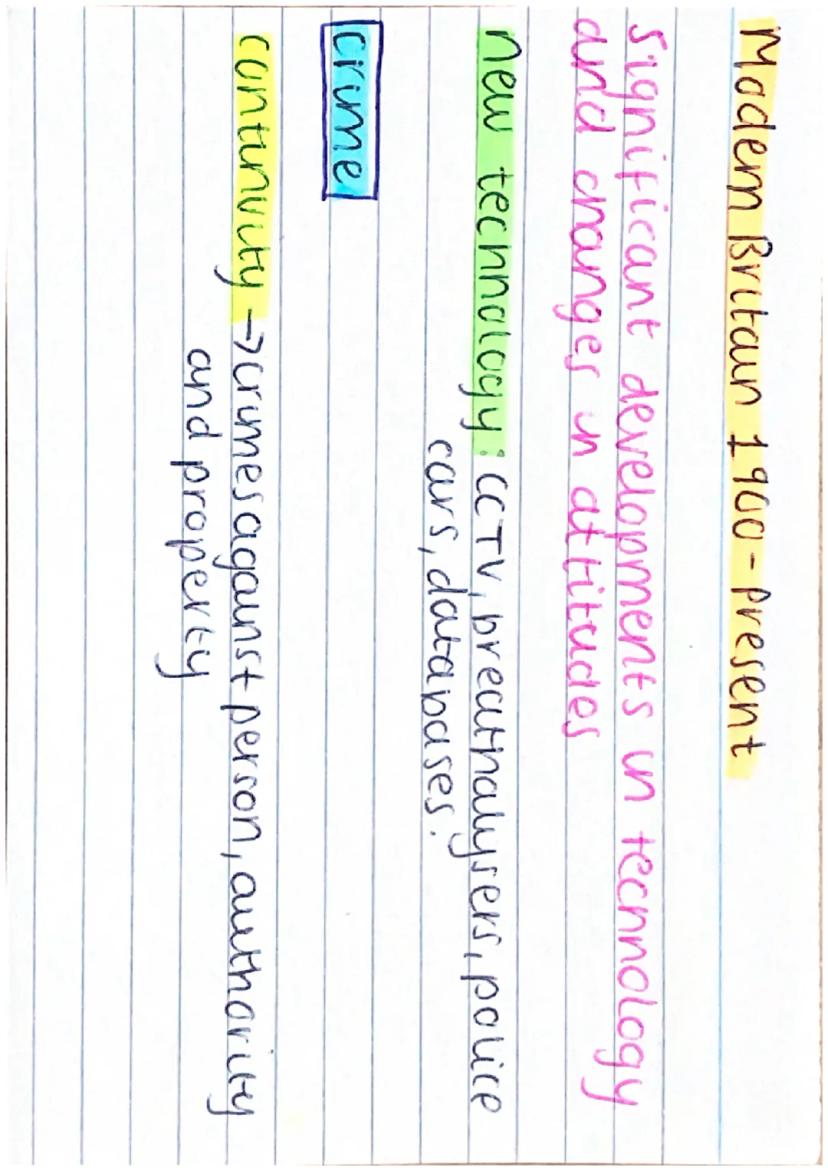 Modern Britain 1900-present
significant developments in technology
and changes in attitudes
new technology: CCTV, breathalysers, police
cars, databases.
crime
continuity →crimes against person, authority
and property